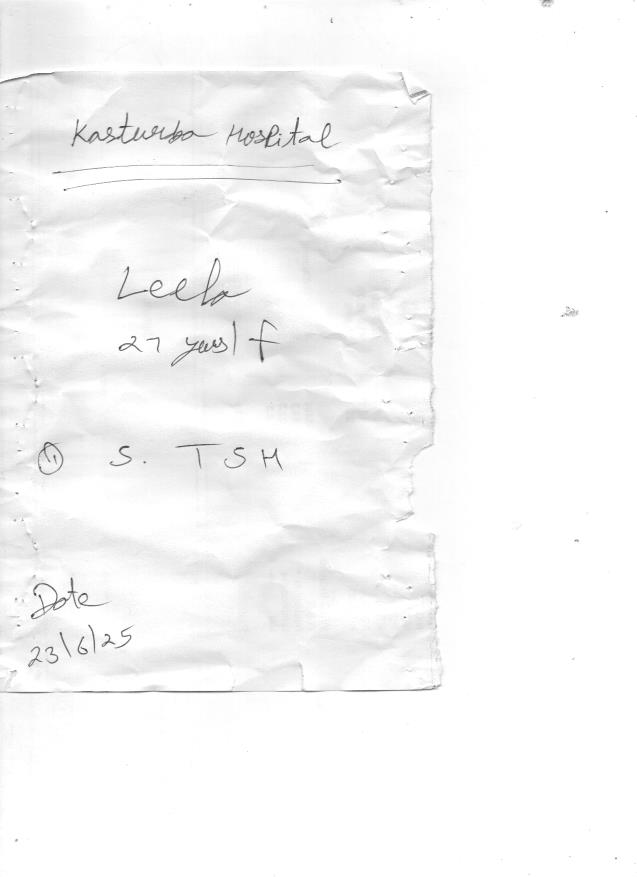 Kasturba Hospital
Leela
27 years/f
① S. TSH
Date
23/6/25